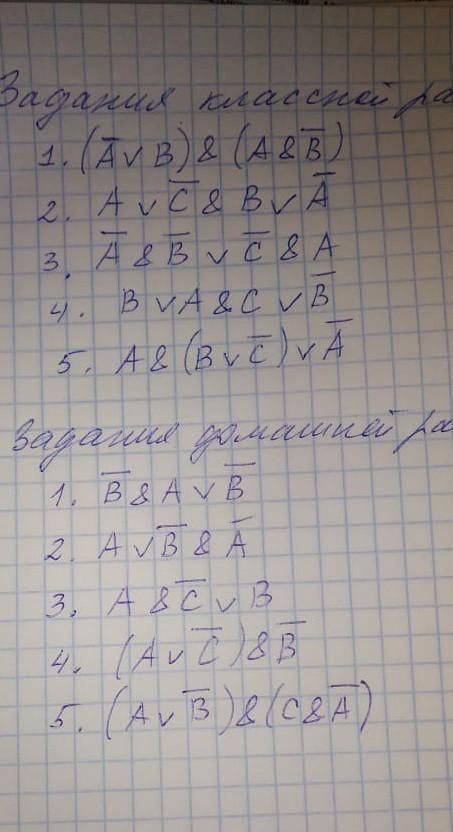 Задания классной ра
1. (A̅ ∨ B) & (A & B̅)
2. A ∨ C̅ & B ∨ A̅
3. A̅ & B̅ ∨ C̅ & A
4. B ∨ A & C ∨ B̅
5. A & (B ∨ C̅) ∨ A̅
Задания домашней ра
1. B̅ & A ∨ B̅
2. A ∨ B̅ & A̅
3. A & C̅ ∨ B
4. (A ∨ C̅) & B̅
5. (A ∨ B̅) & (C & A̅)